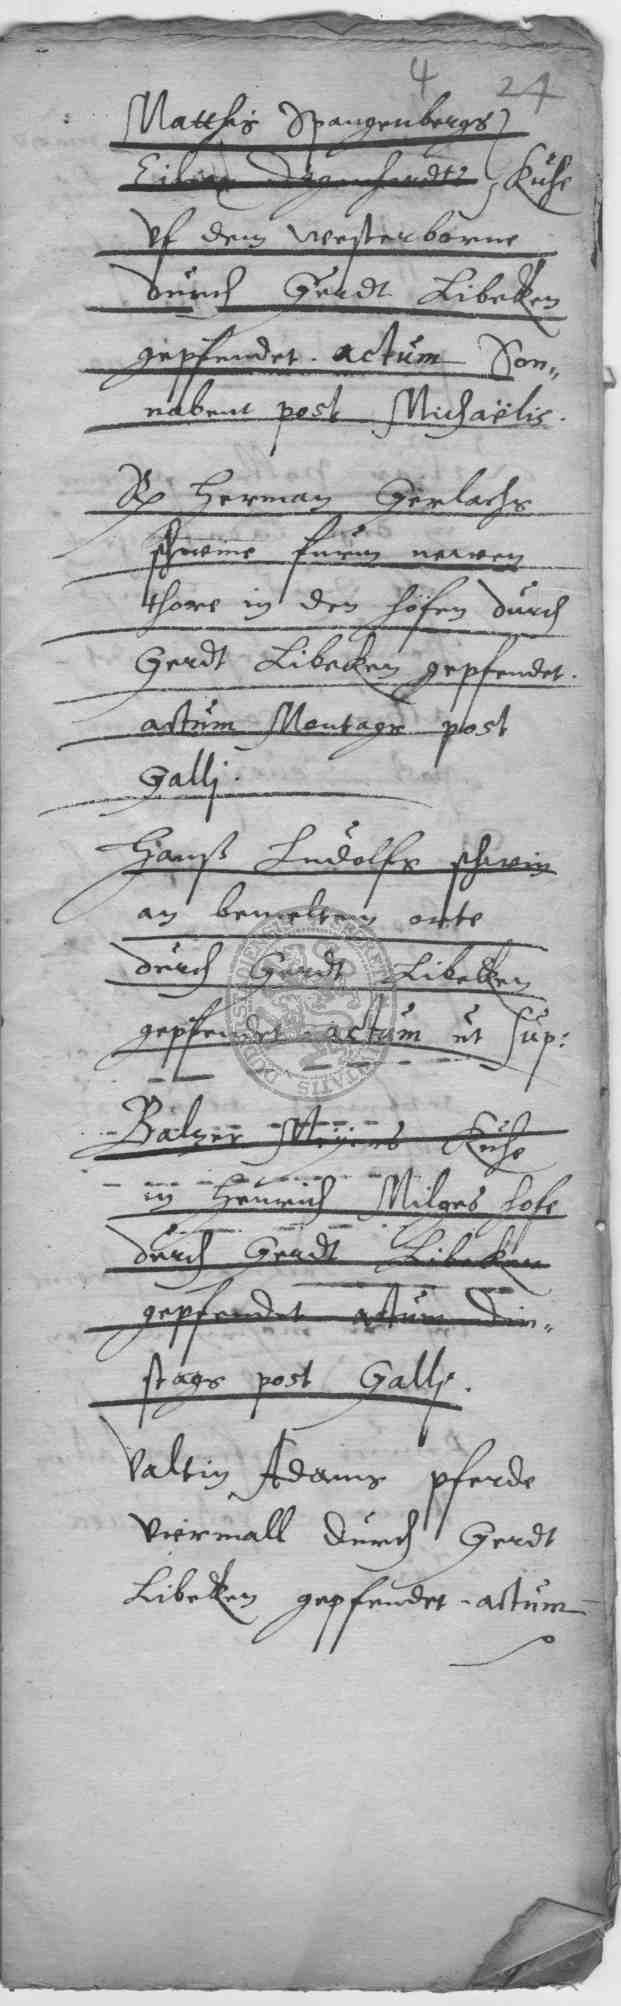 4 24
Matthis Spangenbergs
Kuhe
vf dem westerborne
durch Gerdt Libecken
gepfendet. actum Son„
nabent post Michaëlis.
Herman Gerlachs
schweine furm newen
thore in den höfen durch
Gerdt Libecken gepfendet.
actum Montags post
Gallj.
Hanß Ludolffs schwein
an bemeltem orte
durch Gerdt Libecken
gepfendet actum ut sup:
Baltzer Meyers Kuhe
in Henrich Milges hofe
durch Gerdt Libecken
gepfendet actum Din„
stags post Gallj.
Valtin Adams pferde
viermall durch Gerdt
Libecken gepfendet. actum